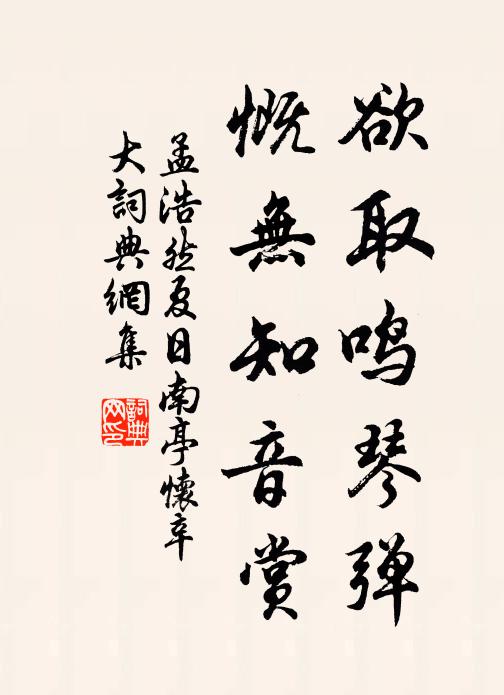 欲取鸣琴弹
慨無知音赏
孟浩然夏日南亭懷辛
大詞典網集
詞典
网印